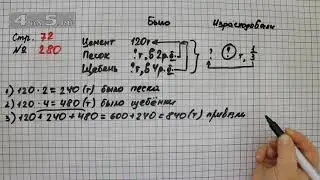 4K5.ru
Стр. 72
№ 280
Было Израсходовали
Цемент 120т
Песок ?т, в 2р.б.
Щебень ?т, в 4р.б.
? ? т, 1/3
1) 120 · 2 = 240 (т) было песка
2) 120 · 4 = 480 (т) было щебёнки
3) 120 + 240 + 480 = 600 + 240 = 840 (т) привезли